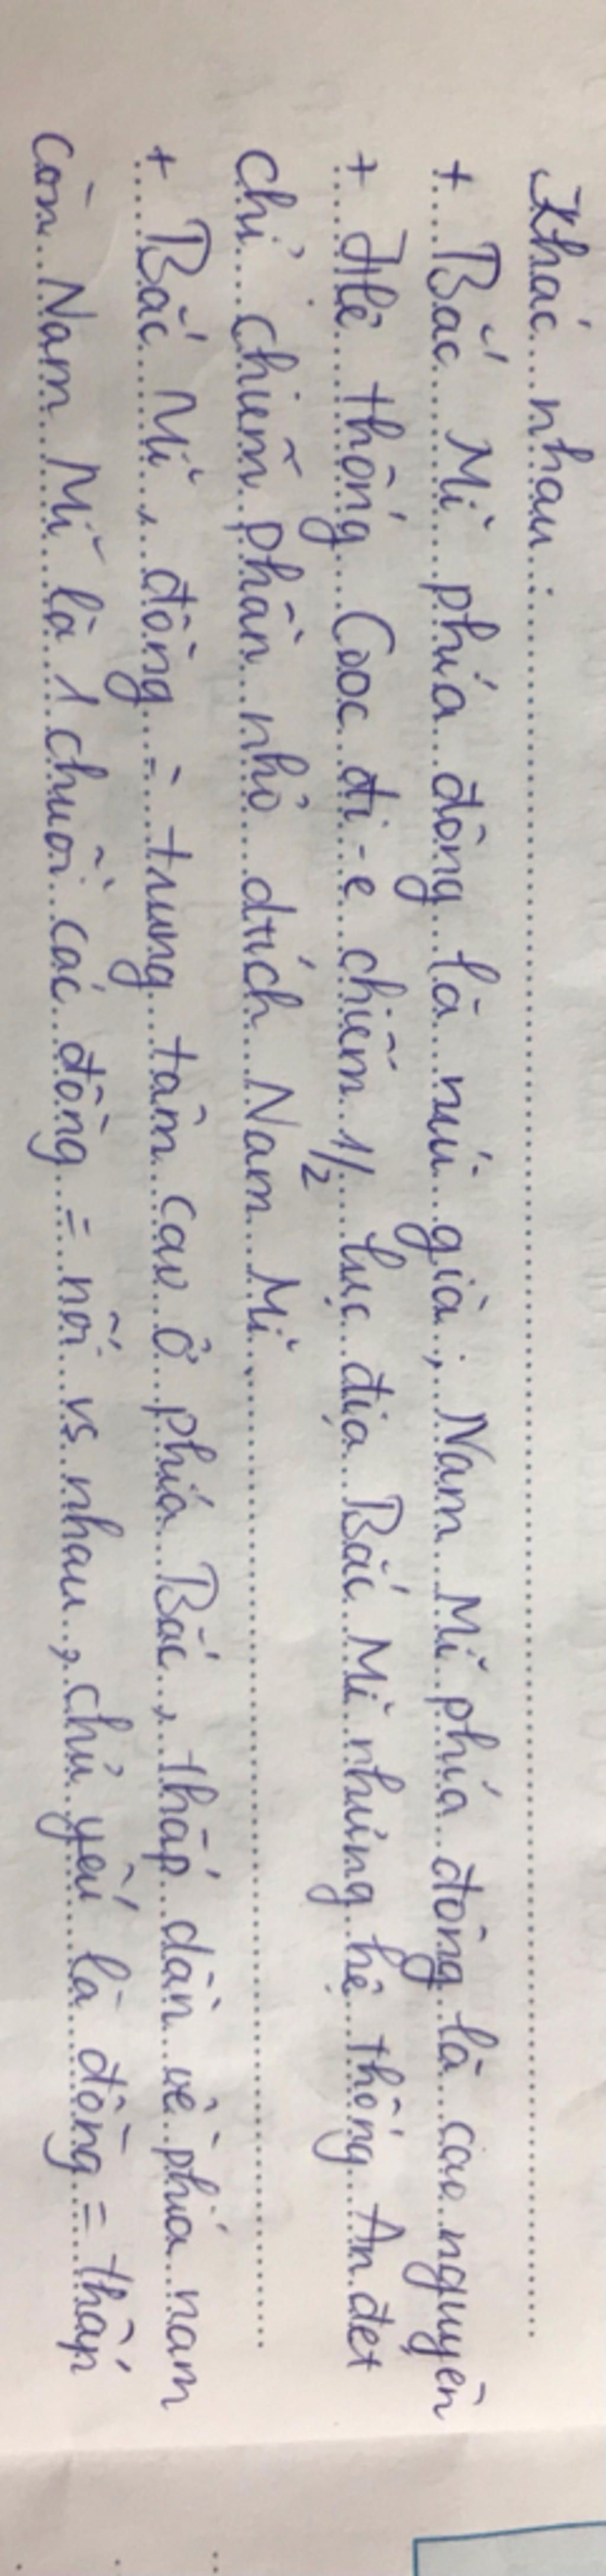 Khác nhau :
+ Bắc Mĩ phía đông là núi già ; Nam Mĩ phía đông là cao nguyên
+ Hệ thống Cooc đi-e chiếm 1/2 lục địa Bắc Mĩ nhưng hệ thống An đet
chỉ chiếm phần nhỏ dtích Nam Mĩ.
+ Bắc Mĩ, đồng = trung tâm cao ở phía Bắc, thấp dần về phía nam
còn Nam Mĩ là 1 chuỗi các đồng = nối vs nhau, chủ yếu là đồng = thấp